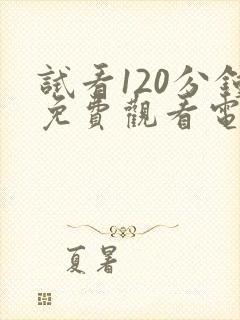 試看120分鐘
免費觀看電
夏暑